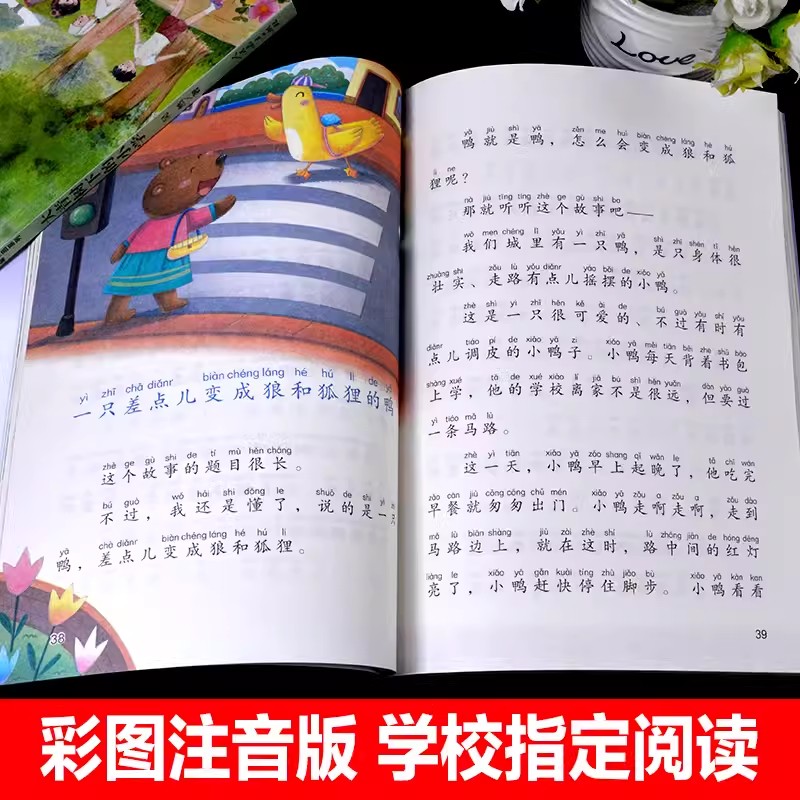 Love
yì zhī chā diǎnr biàn chéng láng hé hú li de yā
一只差点儿变成狼和狐狸的鸭
zhè ge gù shi de tí mù hěn cháng
这个故事的题目很长。
bú guò wǒ hái shi dǒng le shuō de shì
不过，我还是懂了，说的是一只
yā chā diǎnr biàn chéng láng hé hú li
鸭，差点儿变成狼和狐狸。
38
yā jiù shì yā zěn me huì biàn chéng láng hé hú
鸭就是鸭，怎么会变成狼和狐
li ne
狸呢？
nà jiù tīng ting zhè ge gù shi ba
那就听听这个故事吧——
wǒ men chéng lǐ yǒu yì zhī yā shì zhī shēn tǐ hěn
我们城里有一只鸭，是只身体很
zhuàng shi zǒu lù yǒu diǎnr yáo bǎi de xiǎo yā
壮实、走路有点儿摇摆的小鸭。
zhè shì yì zhī hěn kě ài de bú guò yǒu shí yǒu
这是一只很可爱的、不过有时有
diǎnr tiáo pí de xiǎo yā zi xiǎo yā měi tiān bēi zhe shū bāo
点儿调皮的小鸭子。小鸭每天背着书包
shàng xué tā de xué xiào lí jiā bú shì hěn yuǎn dàn yào guò
上学，他的学校离家不是很远，但要过
yì tiáo mǎ lù
一条马路。
zhè yì tiān xiǎo yā zǎo shang qǐ wǎn le tā chī wán
这一天，小鸭早上起晚了，他吃完
zǎo cān jiù cōng cōng chū mén xiǎo yā zǒu a zǒu a zǒu dào
早餐就匆匆出门。小鸭走啊走啊，走到
mǎ lù biān shàng jiù zài zhè shí lù zhōng jiān de hóng dēng
马路边上，就在这时，路中间的红灯
liàng le xiǎo yā gǎn kuài tíng zhù jiǎo bù xiǎo yā kàn kan
亮了，小鸭赶快停住脚步。小鸭看看
39
彩图注音版 学校指定阅读